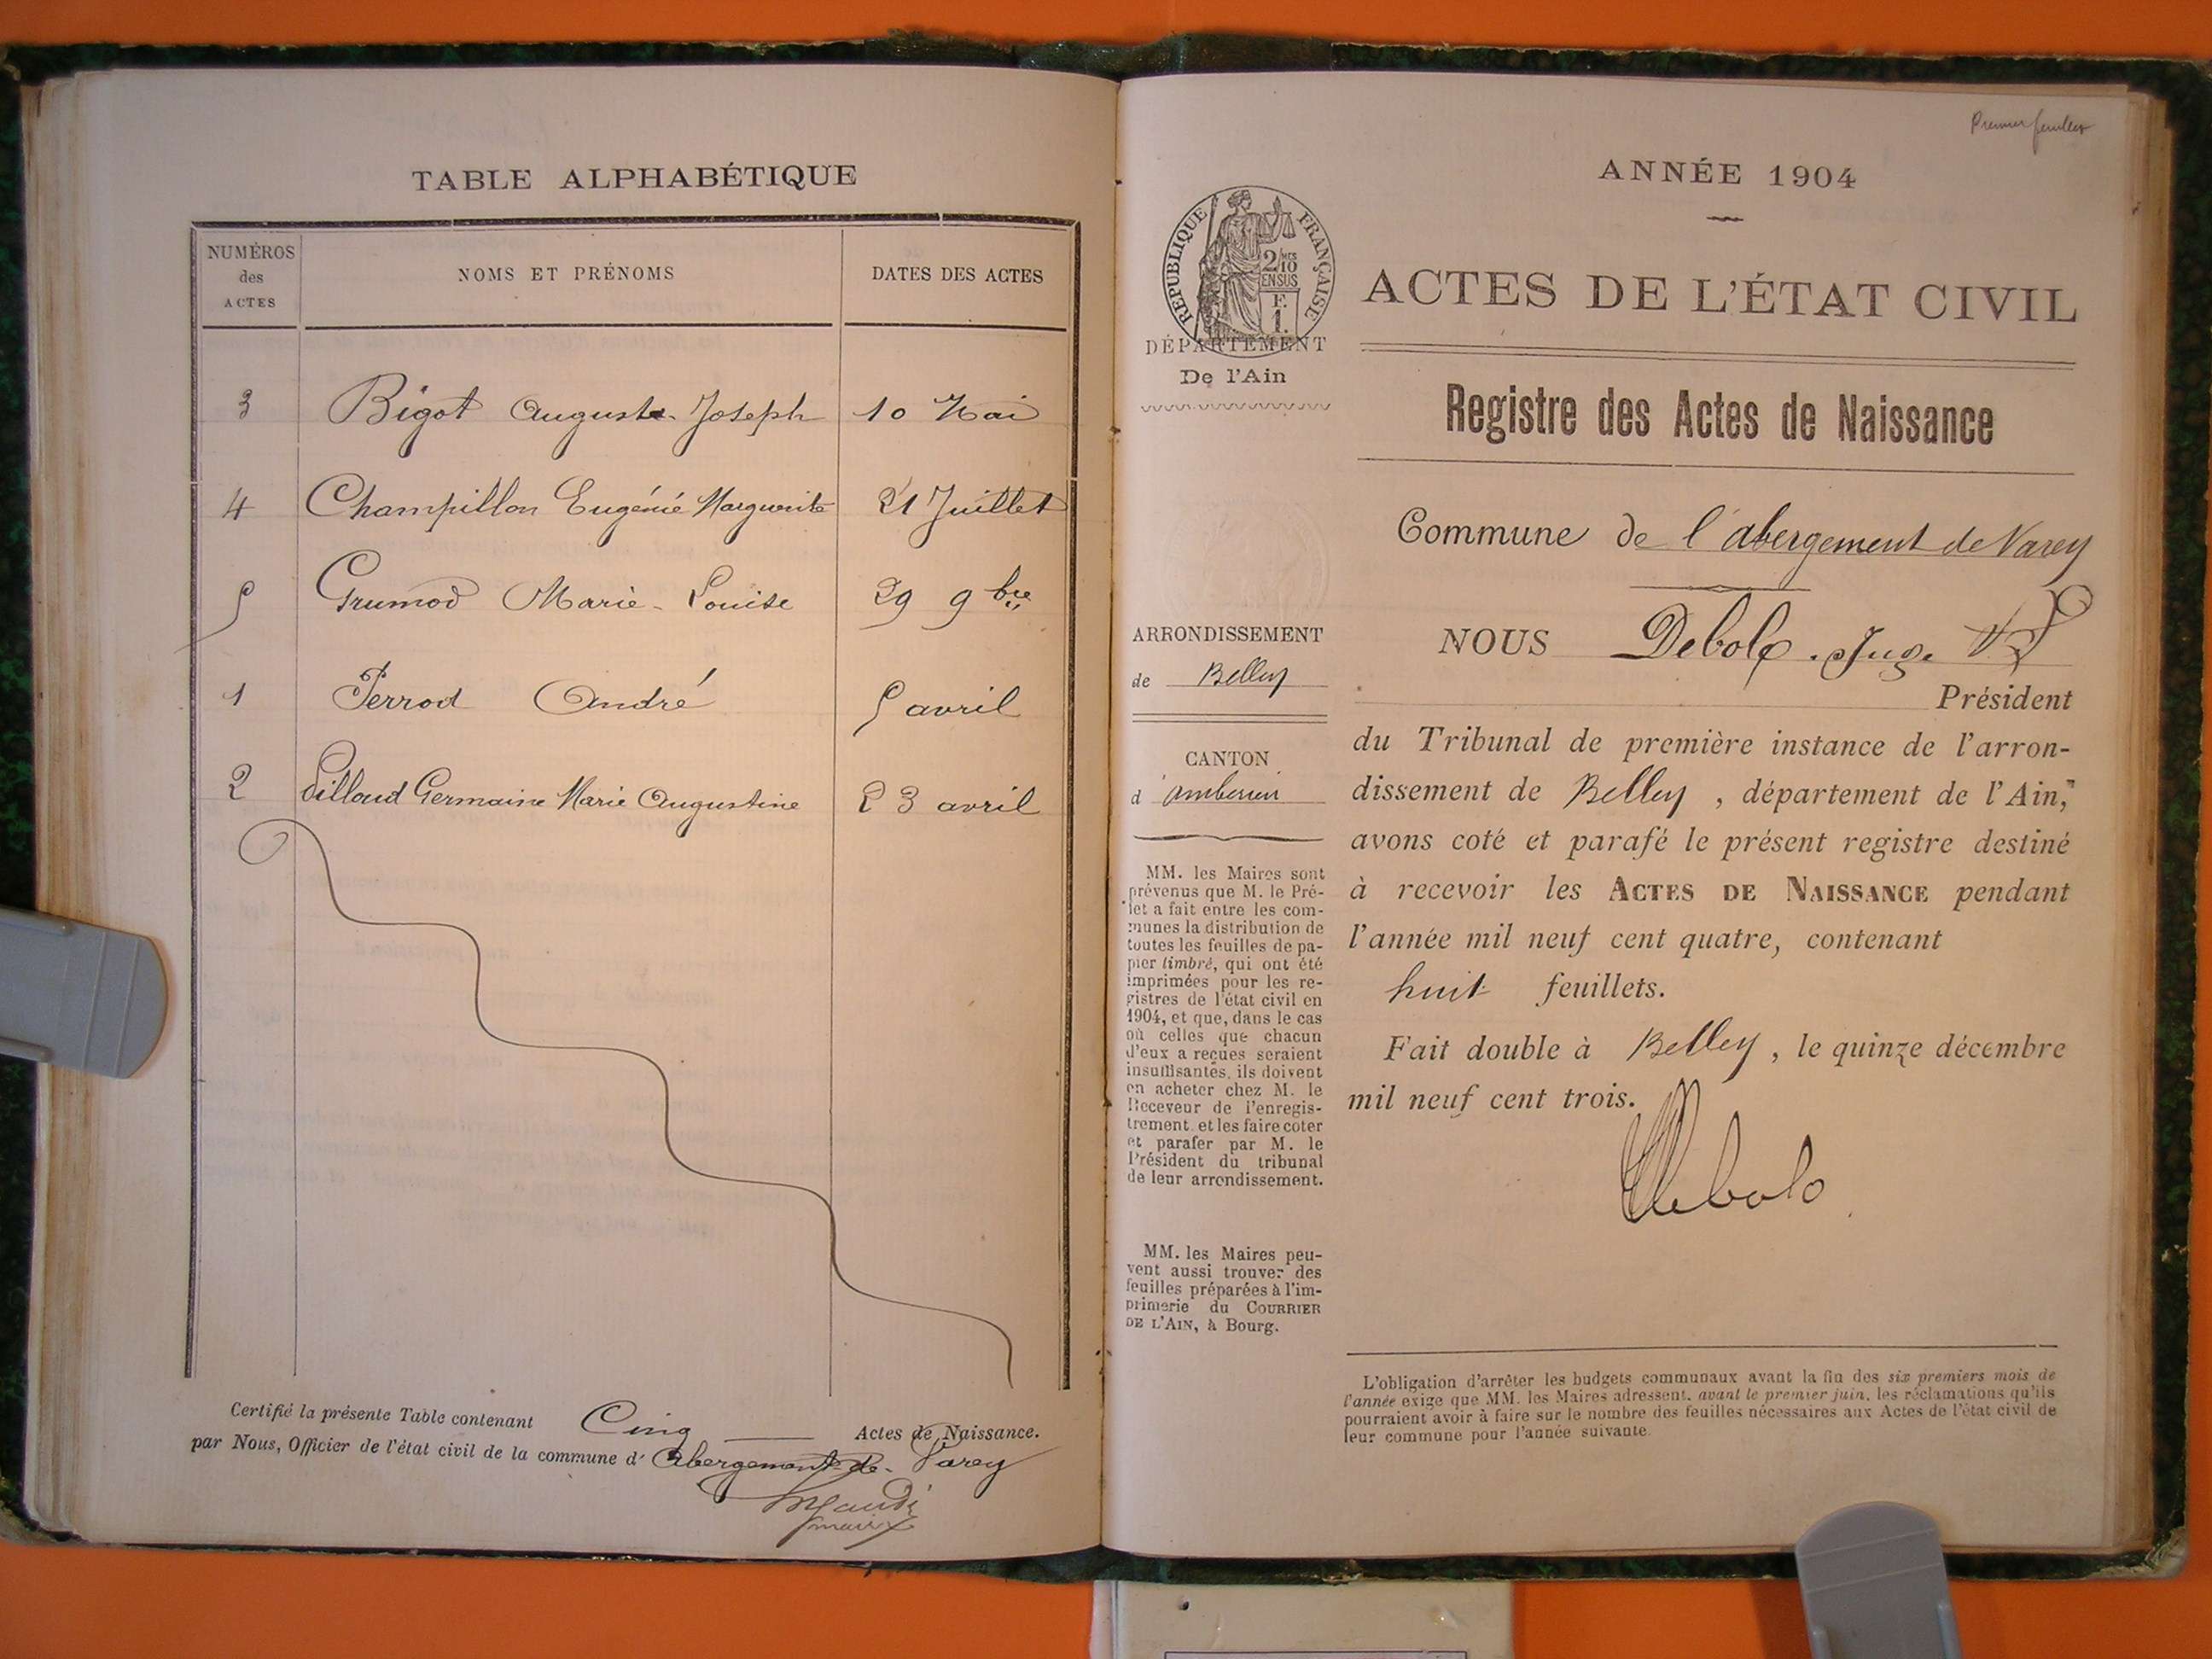 TABLE ALPHABÉTIQUE
NUMÉROS
des
ACTES
NOMS ET PRÉNOMS
DATES DES ACTES
3 Bigot Auguste Joseph 10 Mai
4 Champillon Eugénie Marguerite 21 Juillet
5 Grumod Marie-Louise 29 9bre
1 Perrod André 5 avril
2 Pilloud Germaine Marie Augustine 23 avril
Certifié la présente Table contenant Cinq Actes de Naissance.
par Nous, Officier de l'état civil de la commune d' Abergement-de-Varey
maire
Premier feuillet
ANNÉE 1904
RÉPUBLIQUE FRANÇAISE
2/10 MES
EN SUS
F.
1.
DÉPARTEMENT
De l'Ain
ARRONDISSEMENT
de Belley
CANTON
d'ambérieu
MM. les Maires sont
prévenus que M. le Pré-
fet a fait entre les com-
munes la distribution de
toutes les feuilles de pa-
pier timbré, qui ont été
imprimées pour les re-
gistres de l'état civil en
1904, et que, dans le cas
où celles que chacun
d'eux a reçues seraient
insuffisantes, ils doivent
en acheter chez M. le
Receveur de l'enregis-
trement et les faire coter
et parafer par M. le
Président du tribunal
de leur arrondissement.
MM. les Maires peu-
vent aussi trouver des
feuilles préparées à l'im-
primerie du COURRIER
DE L'AIN, à Bourg.
ACTES DE L'ÉTAT CIVIL
Registre des Actes de Naissance
Commune de l'abergement de Varey
NOUS Debolo Juge
Président
du Tribunal de première instance de l'arron-
dissement de Belley, département de l'Ain,
avons coté et parafé le présent registre destiné
à recevoir les ACTES DE NAISSANCE pendant
l'année mil neuf cent quatre, contenant
huit feuillets.
Fait double à Belley, le quinze décembre
mil neuf cent trois.
Debolo
L'obligation d'arrêter les budgets communaux avant la fin des six premiers mois de
l'année exige que MM. les Maires adressent, avant le premier juin, les réclamations qu'ils
pourraient avoir à faire sur le nombre des feuilles nécessaires aux Actes de l'état civil de
leur commune pour l'année suivante.